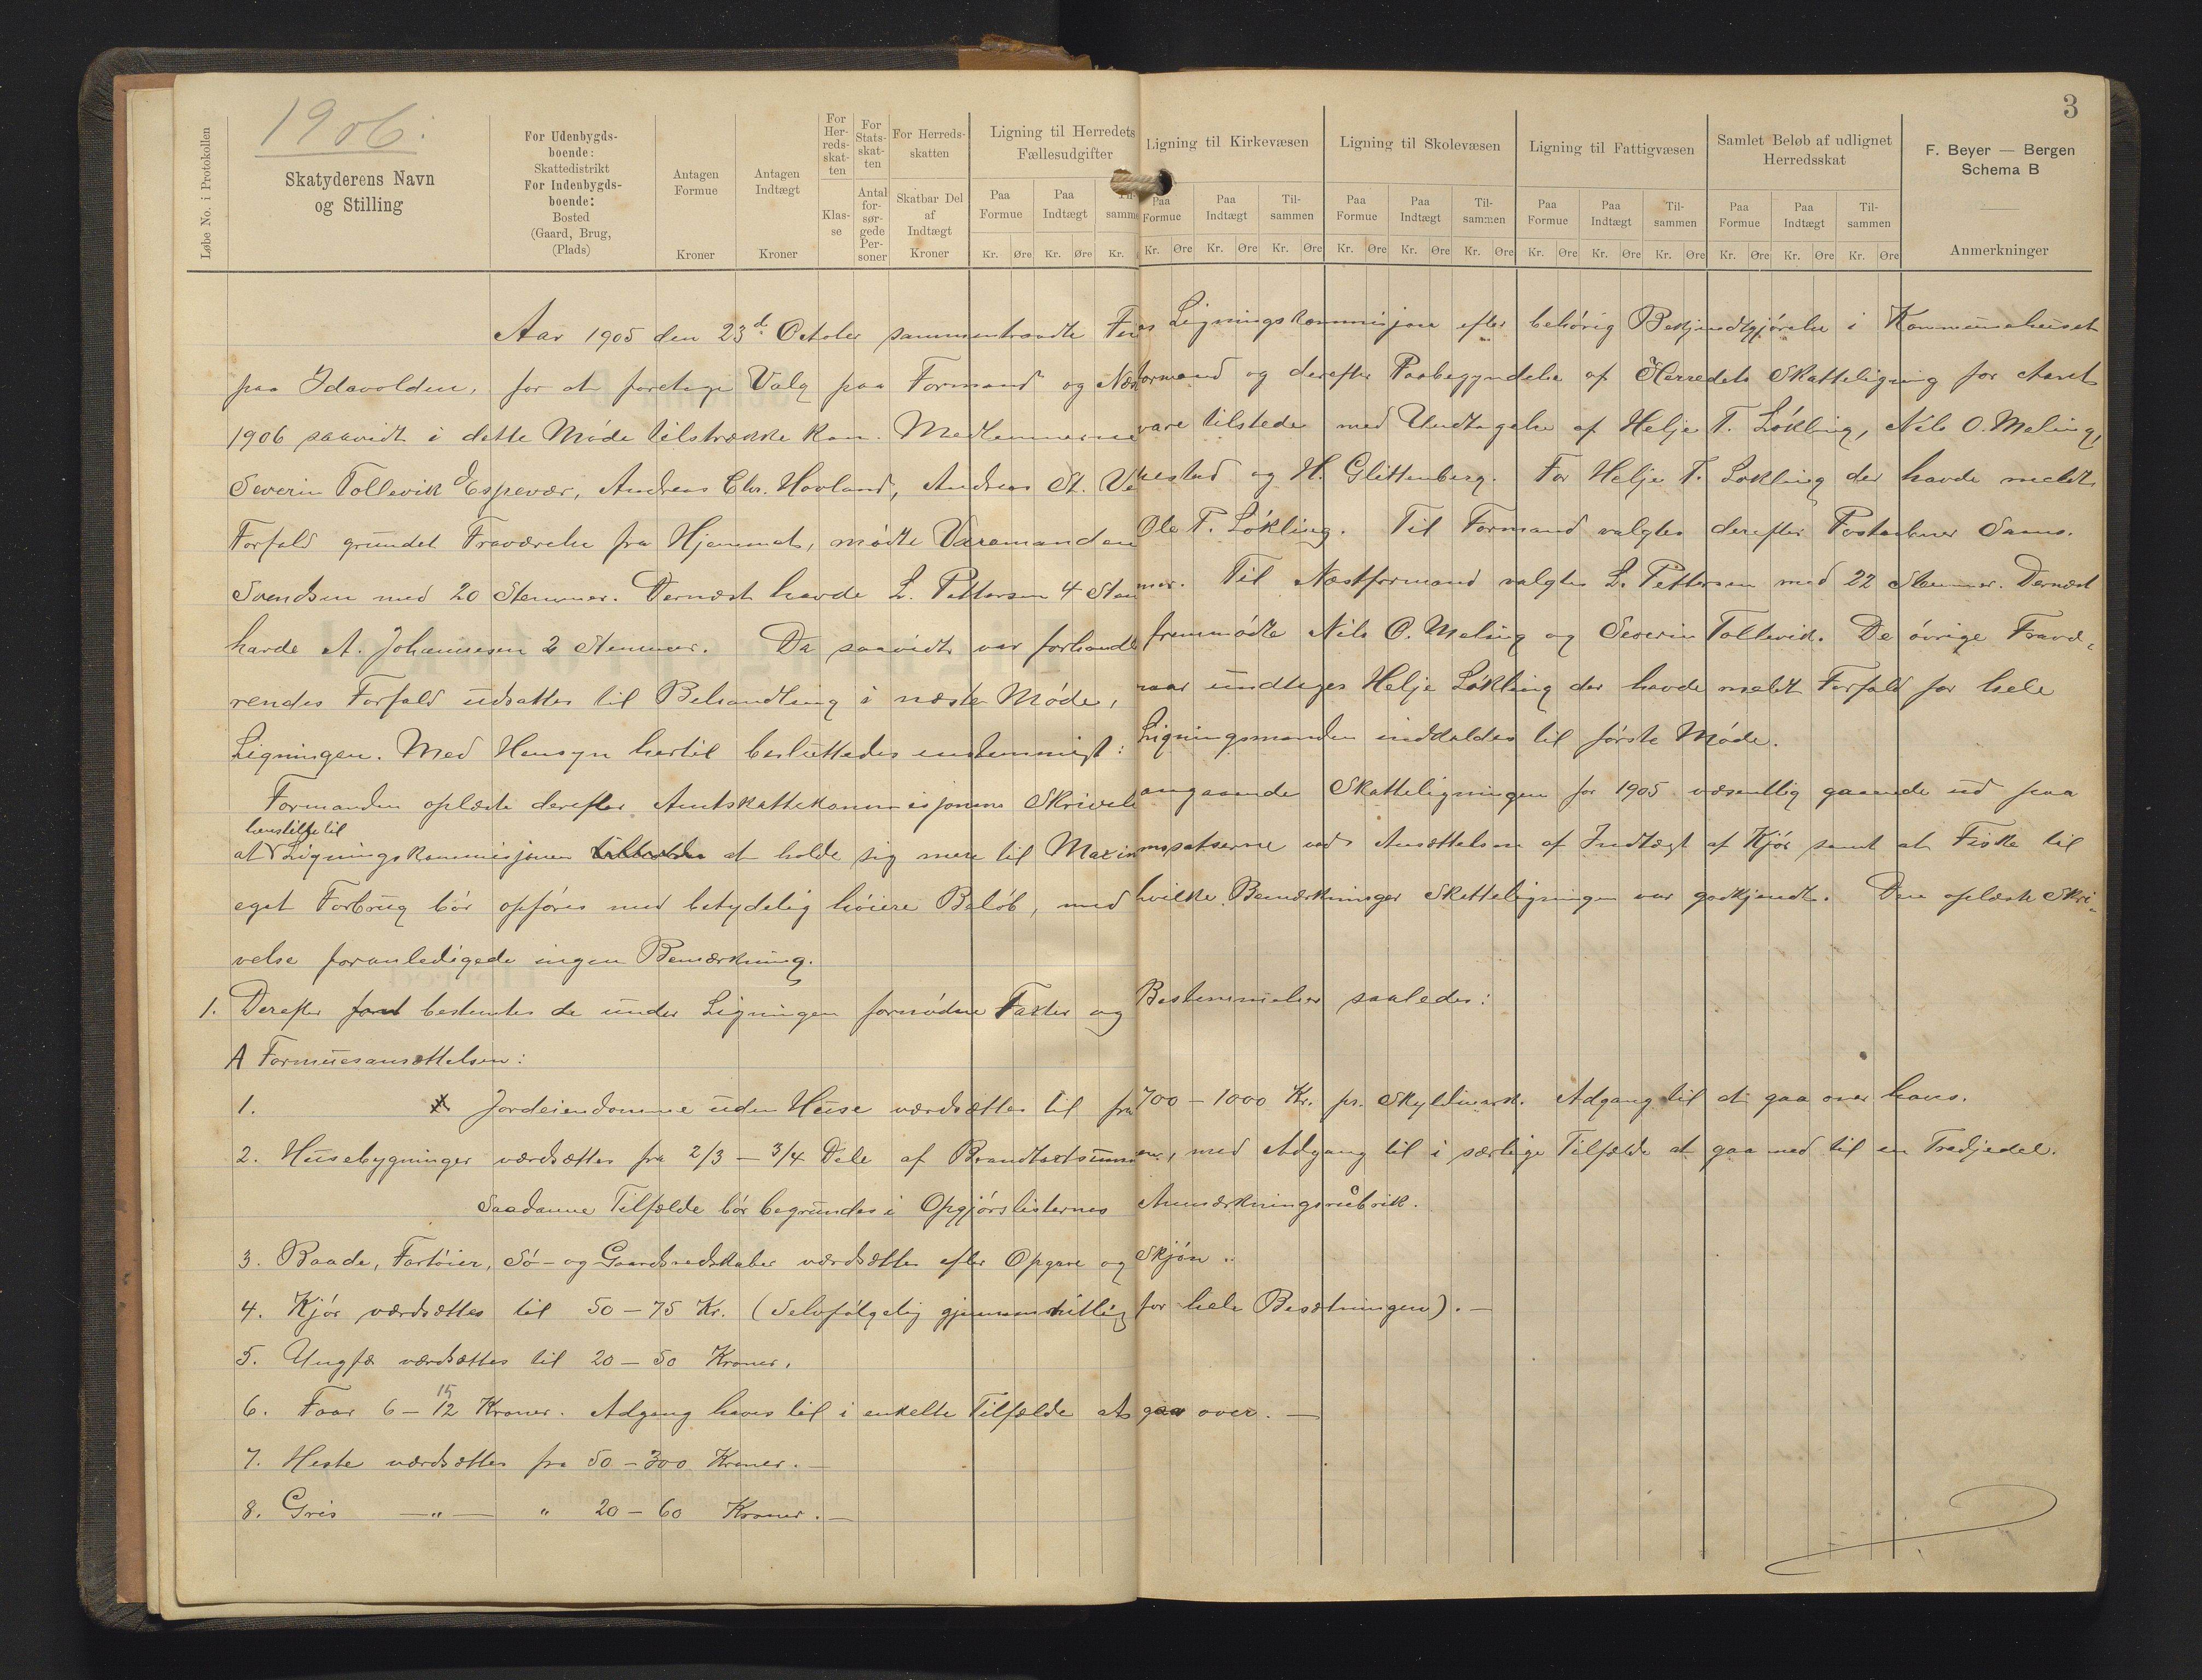 1906.
3
Løbe No. i Protokollen
Skatyderens Navn og Stilling
For Udenbygdsboende: Skattedistrikt For Indenbygdsboende: Bosted (Gaard, Brug, (Plads)
Antagen Formue Kroner
Antagen Indtægt Kroner
For Herredsskatten Klasse
For Statsskatten Antal forsørgede Personer
For Herredsskatten Skatbar Del af Indtægt Kroner
Ligning til Herredets Fællesudgifter
Paa Formue Paa Indtægt Tilsamm
Kr. Øre Kr. Øre Kr.
Ligning til Kirkevæsen
Paa Formue Paa Indtægt Tilsammen
Kr. Øre Kr. Øre Kr. Øre
Ligning til Skolevæsen
Paa Formue Paa Indtægt Tilsammen
Kr. Øre Kr. Øre Kr. Øre
Ligning til Fattigvæsen
Paa Formue Paa Indtægt Tilsammen
Kr. Øre Kr. Øre Kr. Øre
Samlet Beløb af udlignet Herredsskat
Paa Formue Paa Indtægt Tilsammen
Kr. Øre Kr. Øre Kr. Øre
F. Beyer — Bergen
Schema B
Anmerkninger
Aar 1905 den 23d. October sammentraadte Finaas Ligningskommisjon efter behörig Bekjendtgjörelse i Kommunehuset
paa Idavolden, for at foretage Valg paa Formand og Næstformand og derefter Paabegyndelse af Herredets Skatteligning for Aaret
1906 saavidt i dette Møde tilstrække kan. Medlemmerne vare tilstede med Undtagelse af Helje T. Lökling, Nils O. Meling,
Severin Tollevik Espevær, Andreas Chr. Hovland, Andreas A. Vestad og H. Glittenberg. For Helje T. Lökling der havde meldt
Forfald grundet Fraværelse fra Hjemmet, mødte Varamanden Ole T. Lökling. Til Formand valgtes derefter Postaabner Sams.
Svendsen med 20 Stemmer. Dernæst havde L. Pettersen 4 Stemmer. Til Næstformand valgtes L. Pettersen med 22 Stemmer. Dernæst
havde A. Johannesen 2 Stemmer. Da saavidt var forhandlet fremmödte Nils O. Meling og Severin Tollevik. De övrige Fravæ-
rendes Forfald udsattes til Behandling i næste Møde, naar undtages Helje Lökling der havde meldt Forfald for hele
Ligningen. Med Hensyn hertil besluttedes enstemmigt: Ligningsmanden inddeles til förste Møde.
Formanden oplæste derefter Amtskattekommisjonens Skrivelse angaaende Skatteligningen for 1905 væsentlig gaaende ud paa
henstille til
at Ligningskommisjonen at holde sig mere til Maximumssatserne ved Ansættelsen af Indtægt af Kjör samt at Fiske til
eget Forbrug bör opføres med betydelig höiere Belöb, med hvilke Bemærkninger Skatteligningen var godkjendt. Den oplæste Skri-
velse foranledigede ingen Bemærkning.
1. Derefter bestemtes de under Ligningen fornödne Taxter og Bestemmelser saaledes:
A Formuesansættelsen:
1. Jordeiendomme uden Huse værdsættes til fra 700 - 1000 Kr. pr. Skyldmark. Adgang til at gaa over haves.
2. Husebygninger værdsættes fra 2/3 - 3/4 Dele af Brandtaxtsummen, med Adgang til i særlige Tilfælde at gaa ned til en Tredjedel.
Saadanne Tilfælde bör begrundes i Opgjörslisternes Anmærkningsrubrik.
3. Baade, Fartöier, Sö- og Gaardsredskaber værdsættes efter Opgave og Skjön.
4. Kjör værdsættes til 50 - 75 Kr. (Selvfölgelig gjennemsnitlig for hele Besætningen). —
5. Ungfæ værdsættes til 20 - 50 Kroner.
6. Faar 6 - 12 15 Kroner. Adgang haves til i enkelte Tilfælde at gaa over. —
7. Heste værdsættes fra 50 - 300 Kroner. —
8. Gris — " — " 20 - 60 Kroner. —